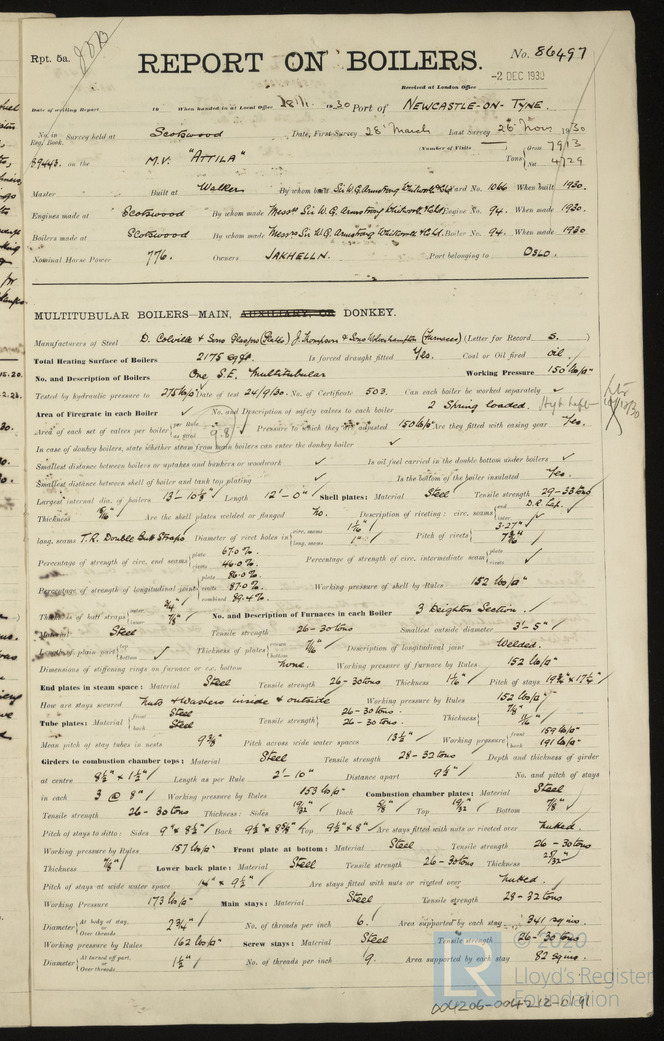 Rpt. 5a.
REPORT ON BOILERS.
No. 86497
Received at London Office -2 DEC 1930
Date of writing Report 19 When handed in at Local Office 28/11/ 1930 Port of NEWCASTLE-ON-TYNE.
No. in Reg. Book. Survey held at Scotswood Date, First Survey 28 March Last Survey 26 Nov 1930
(Number of Visits
89443. on the M.V. "ATTILA" Tons Gross 7913 Net 4729
Master Built at Walker By whom built Sir W. G. Armstrong Whitworth & Co Ld Yard No. 1066 When built 1930.
Engines made at Scotswood By whom made Messrs Sir W. G. Armstrong Whitworth & Co Ld. Engine No. 94. When made 1930.
Boilers made at Scotswood By whom made Messrs Sir W. G. Armstrong Whitworth & Co Ld. Boiler No. 94. When made 1930
Nominal Horse Power 776. Owners JAKHELLN. Port belonging to OSLO.
MULTITUBULAR BOILERS—MAIN, AUXILIARY, OR DONKEY.
Manufacturers of Steel D. Colville & Sons Glasgow (Plates) J. Thompson & Sons Wolverhampton (Furnaces) (Letter for Record S.)
Total Heating Surface of Boilers 2175 sq ft. Is forced draught fitted Yes. Coal or Oil fired oil.
No. and Description of Boilers One S.E. Multitubular Working Pressure 150 lbs/□"
Tested by hydraulic pressure to 275 lbs/□" Date of test 24/9/30. No. of Certificate 503. Can each boiler be worked separately ✓
Area of Firegrate in each Boiler ✓ No. and Description of safety valves to each boiler 2 Spring loaded. High lift
Area of each set of valves per boiler per Rule as fitted 9.8 Pressure to which they are adjusted 150 lbs/□" Are they fitted with easing gear Yes.
In case of donkey boilers, state whether steam from main boilers can enter the donkey boiler ✓
Smallest distance between boilers or uptakes and bunkers or woodwork ✓ Is oil fuel carried in the double bottom under boilers ✓
Smallest distance between shell of boiler and tank top plating ✓ Is the bottom of the boiler insulated Yes.
Largest internal dia. of boilers 13'-10⅝" Length 12'-0" Shell plates: Material Steel Tensile strength 29-33 tons
Thickness Are the shell plates welded or flanged No. Description of riveting: circ. seams end D.R. Lap. inter.
long. seams T.R. Double Butt Straps Diameter of rivet holes in circ. seams 1 1/16" long. seams 1" Pitch of rivets 3.27" 7 3/16"
Percentage of strength of circ. end seams plate 67.0%. rivets 46.0%. Percentage of strength of circ. intermediate seam plate rivets ✓
Percentage of strength of longitudinal joint plate 86.0%. rivets 87.0%. combined 89.4%. Working pressure of shell by Rules 152 lbs/□"
Thickness of butt straps outer 3/4" inner 7/8" No. and Description of Furnaces in each Boiler 3 Deighton Section.
Material Steel Tensile strength 26-30 tons Smallest outside diameter 3'-5"
Length of plain part top bottom ✓ Thickness of plates crown bottom 7/16" Description of longitudinal joint Welded.
Dimensions of stiffening rings on furnace or c.c. bottom None. Working pressure of furnace by Rules 152 lbs/□"
End plates in steam space: Material Steel Tensile strength 26-30 tons Thickness 1 1/16" Pitch of stays 19¾" x 17¼"
How are stays secured Nuts & Washers inside & outside Working pressure by Rules 152 lbs/□"
Tube plates: Material front Steel back Steel Tensile strength 26-30 tons. 26-30 tons. Thickness 7/8" 11/16"
Mean pitch of stay tubes in nests 9⅜" Pitch across wide water spaces 13½" Working pressure front 159 lbs/□" back 191 lbs/□"
Girders to combustion chamber tops: Material Steel Tensile strength 28-32 tons Depth and thickness of girder
at centre 8½" x 1½" Length as per Rule 2'-10" Distance apart 9½" No. and pitch of stays
in each 3 @ 8" Working pressure by Rules 153 lbs/□" Combustion chamber plates: Material Steel
Tensile strength 26-30 tons Thickness: Sides 19/32" Back 5/8" Top 19/32" Bottom 7/8"
Pitch of stays to ditto: Sides 9" x 8½" Back 9½" x 8⅝" Top 9½" x 8" Are stays fitted with nuts or riveted over Nutted.
Working pressure by Rules 157 lbs/□" Front plate at bottom: Material Steel Tensile strength 26-30 tons
Thickness 7/8" Lower back plate: Material Steel Tensile strength 26-30 tons Thickness 25/32"
Pitch of stays at wide water space 14" x 9½" Are stays fitted with nuts or riveted over Nutted.
Working Pressure 173 lbs/□" Main stays: Material Steel Tensile strength 28-32 tons
Diameter At body of stay, or Over threads 2¾" No. of threads per inch 6. Area supported by each stay 341 sq ins.
Working pressure by Rules 162 lbs/□" Screw stays: Material Steel Tensile strength 26-30 tons
Diameter At turned off part, or Over threads 1½" No. of threads per inch 9. Area supported by each stay 82 sq ins.
© 2020
LR
Lloyd's Register
Foundation
004206-004212-0191